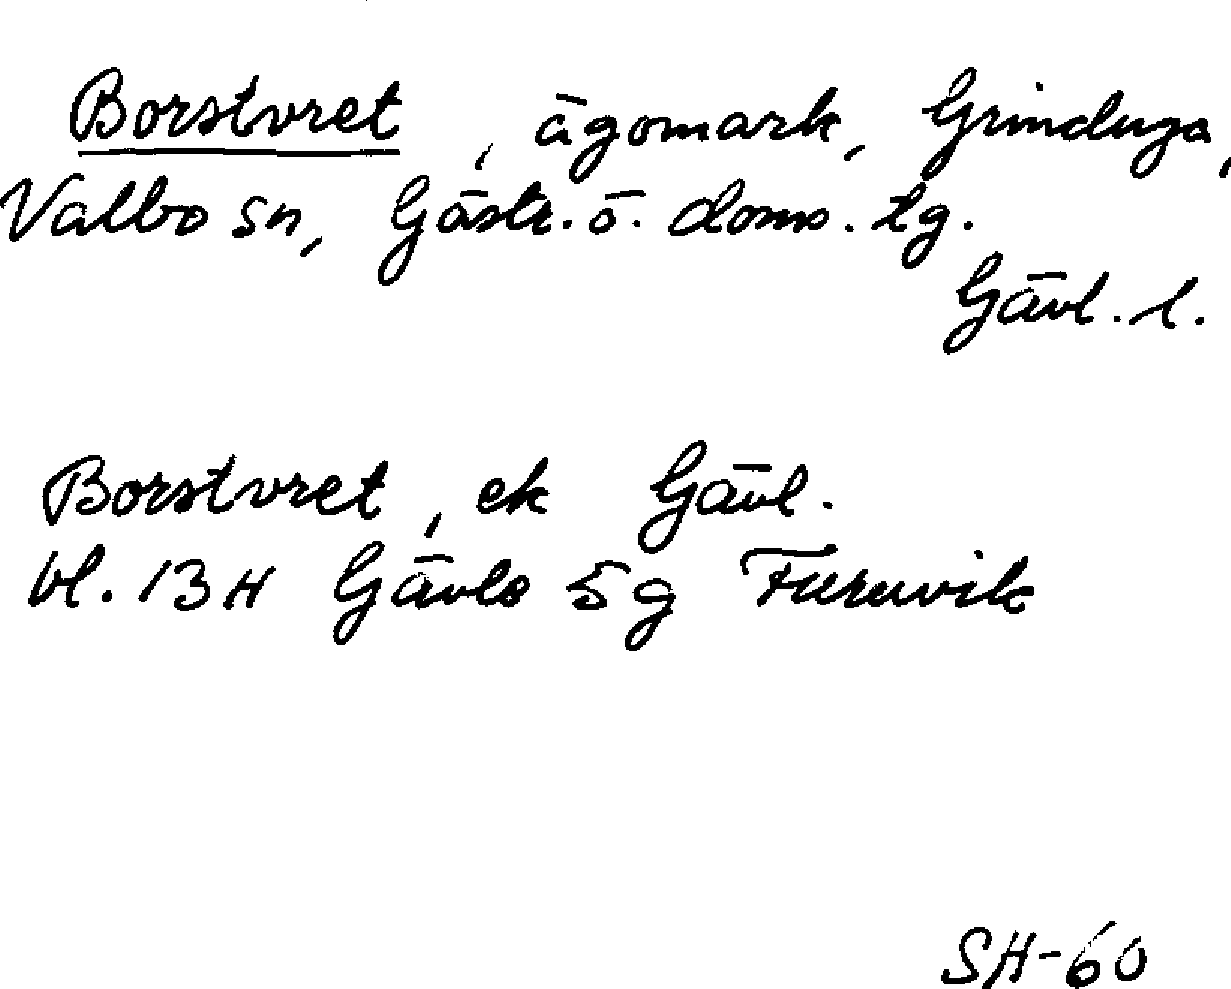 Borstvret, ägomark, Grinduga,
Valbo sn, Gästr. ö. doms. tg.
Gävl. l.
Borstvret, ek Gävl.
bl. 13H Gävle 5g Furuvik
SH-60